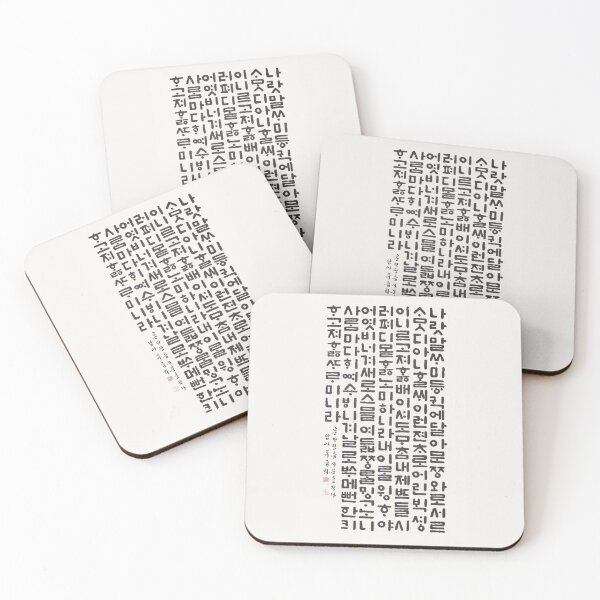 나랏말ᄊᆞ미듕귁에달아문ᄍᆞᆼ와로서르
ᄉᆞᄆᆞᆺ디아니ᄒᆞᆯᄊᆡ이런젼ᄎᆞ로어린ᄇᆡᆨ셩
이니르고져호ᇙ배이셔도ᄆᆞᄎᆞᆷ내제ᄠᅳ들시
러펴디몯ᄒᆞᇙ노미하니라내이ᄅᆞᆯ윙ᄒᆞ야
어엿비너겨새로스믈여듧ᄍᆞᆼᄅᆞᆯᄆᆡᇰᄀᆞ노니
사ᄅᆞᆷ마다ᄒᆡᅇᅧ수ᄫᅵ니겨날로ᄡᅮ메뼌한킈
ᄒᆞ고져ᄒᆞᇙᄯᆞᄅᆞ미니라